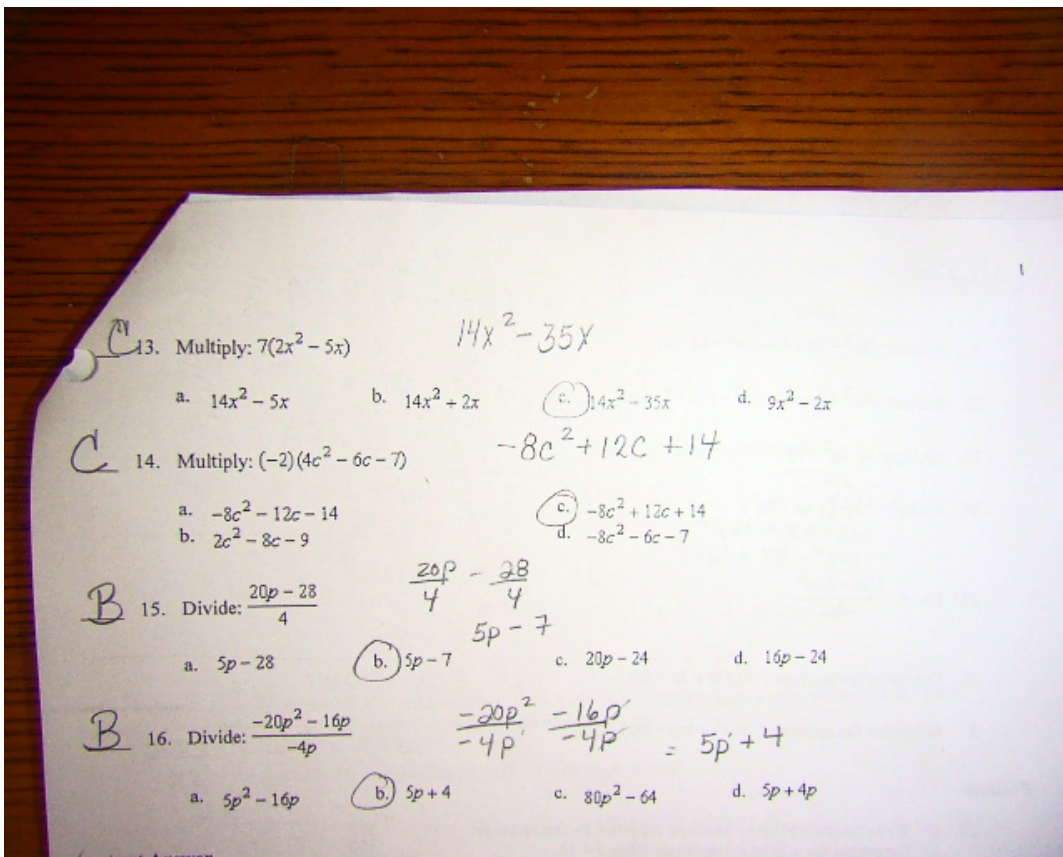 1
C 13. Multiply: 7(2x² – 5x) 14x² – 35x
a. 14x² – 5x b. 14x² + 2x c. 14x² – 35x d. 9x² – 2x
C 14. Multiply: (–2)(4c² – 6c – 7) –8c² + 12c + 14
a. –8c² – 12c – 14 c. –8c² + 12c + 14
b. 2c² – 8c – 9 d. –8c² – 6c – 7
B 15. Divide: (20p – 28)/4 20p/4 – 28/4
5p – 7
a. 5p – 28 b. 5p – 7 c. 20p – 24 d. 16p – 24
B 16. Divide: (–20p² – 16p)/(–4p) –20p²/–4p –16p/–4p = 5p + 4
a. 5p² – 16p b. 5p + 4 c. 80p² – 64 d. 5p + 4p